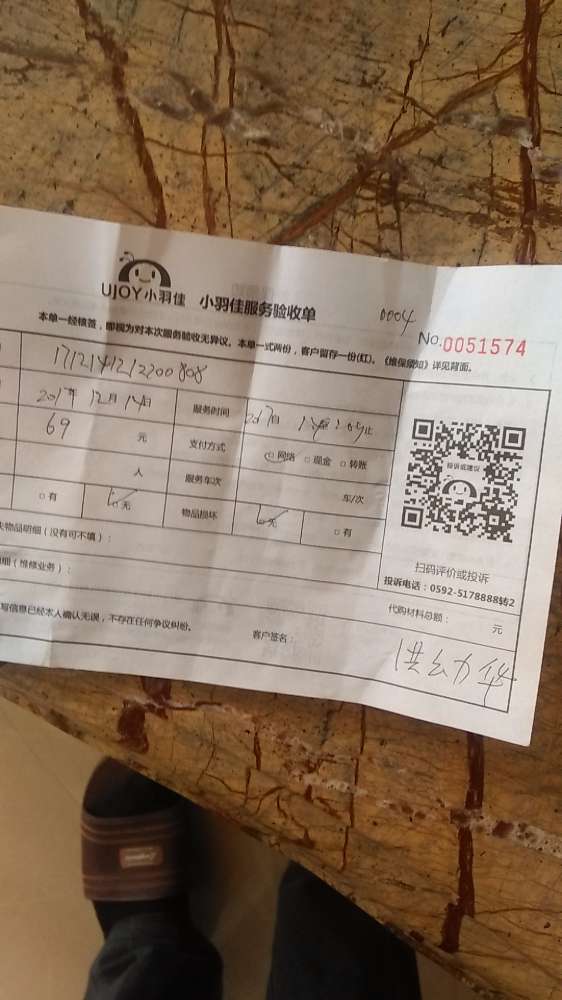 UJOY小羽佳 小羽佳服务验收单 0004
No.0051574
本单一经核签，即视为对本次服务验收无异议。本单一式两份，客户留存一份(红)。《维保须知》详见背面。
1712141212200808
2017年12月14日 服务时间
69 元 支付方式 □网络 □现金 □转账
人 服务车次 车/次
□有 □无 物品损坏 □无 □有
投诉或建议
失物品明细（没有可不填）：
扫码评价或投诉
投诉电话：0592-5178888转2
细（维修业务）：
代购材料总额： 元
写信息已经本人确认无误，不存在任何争议纠纷。
客户签名：